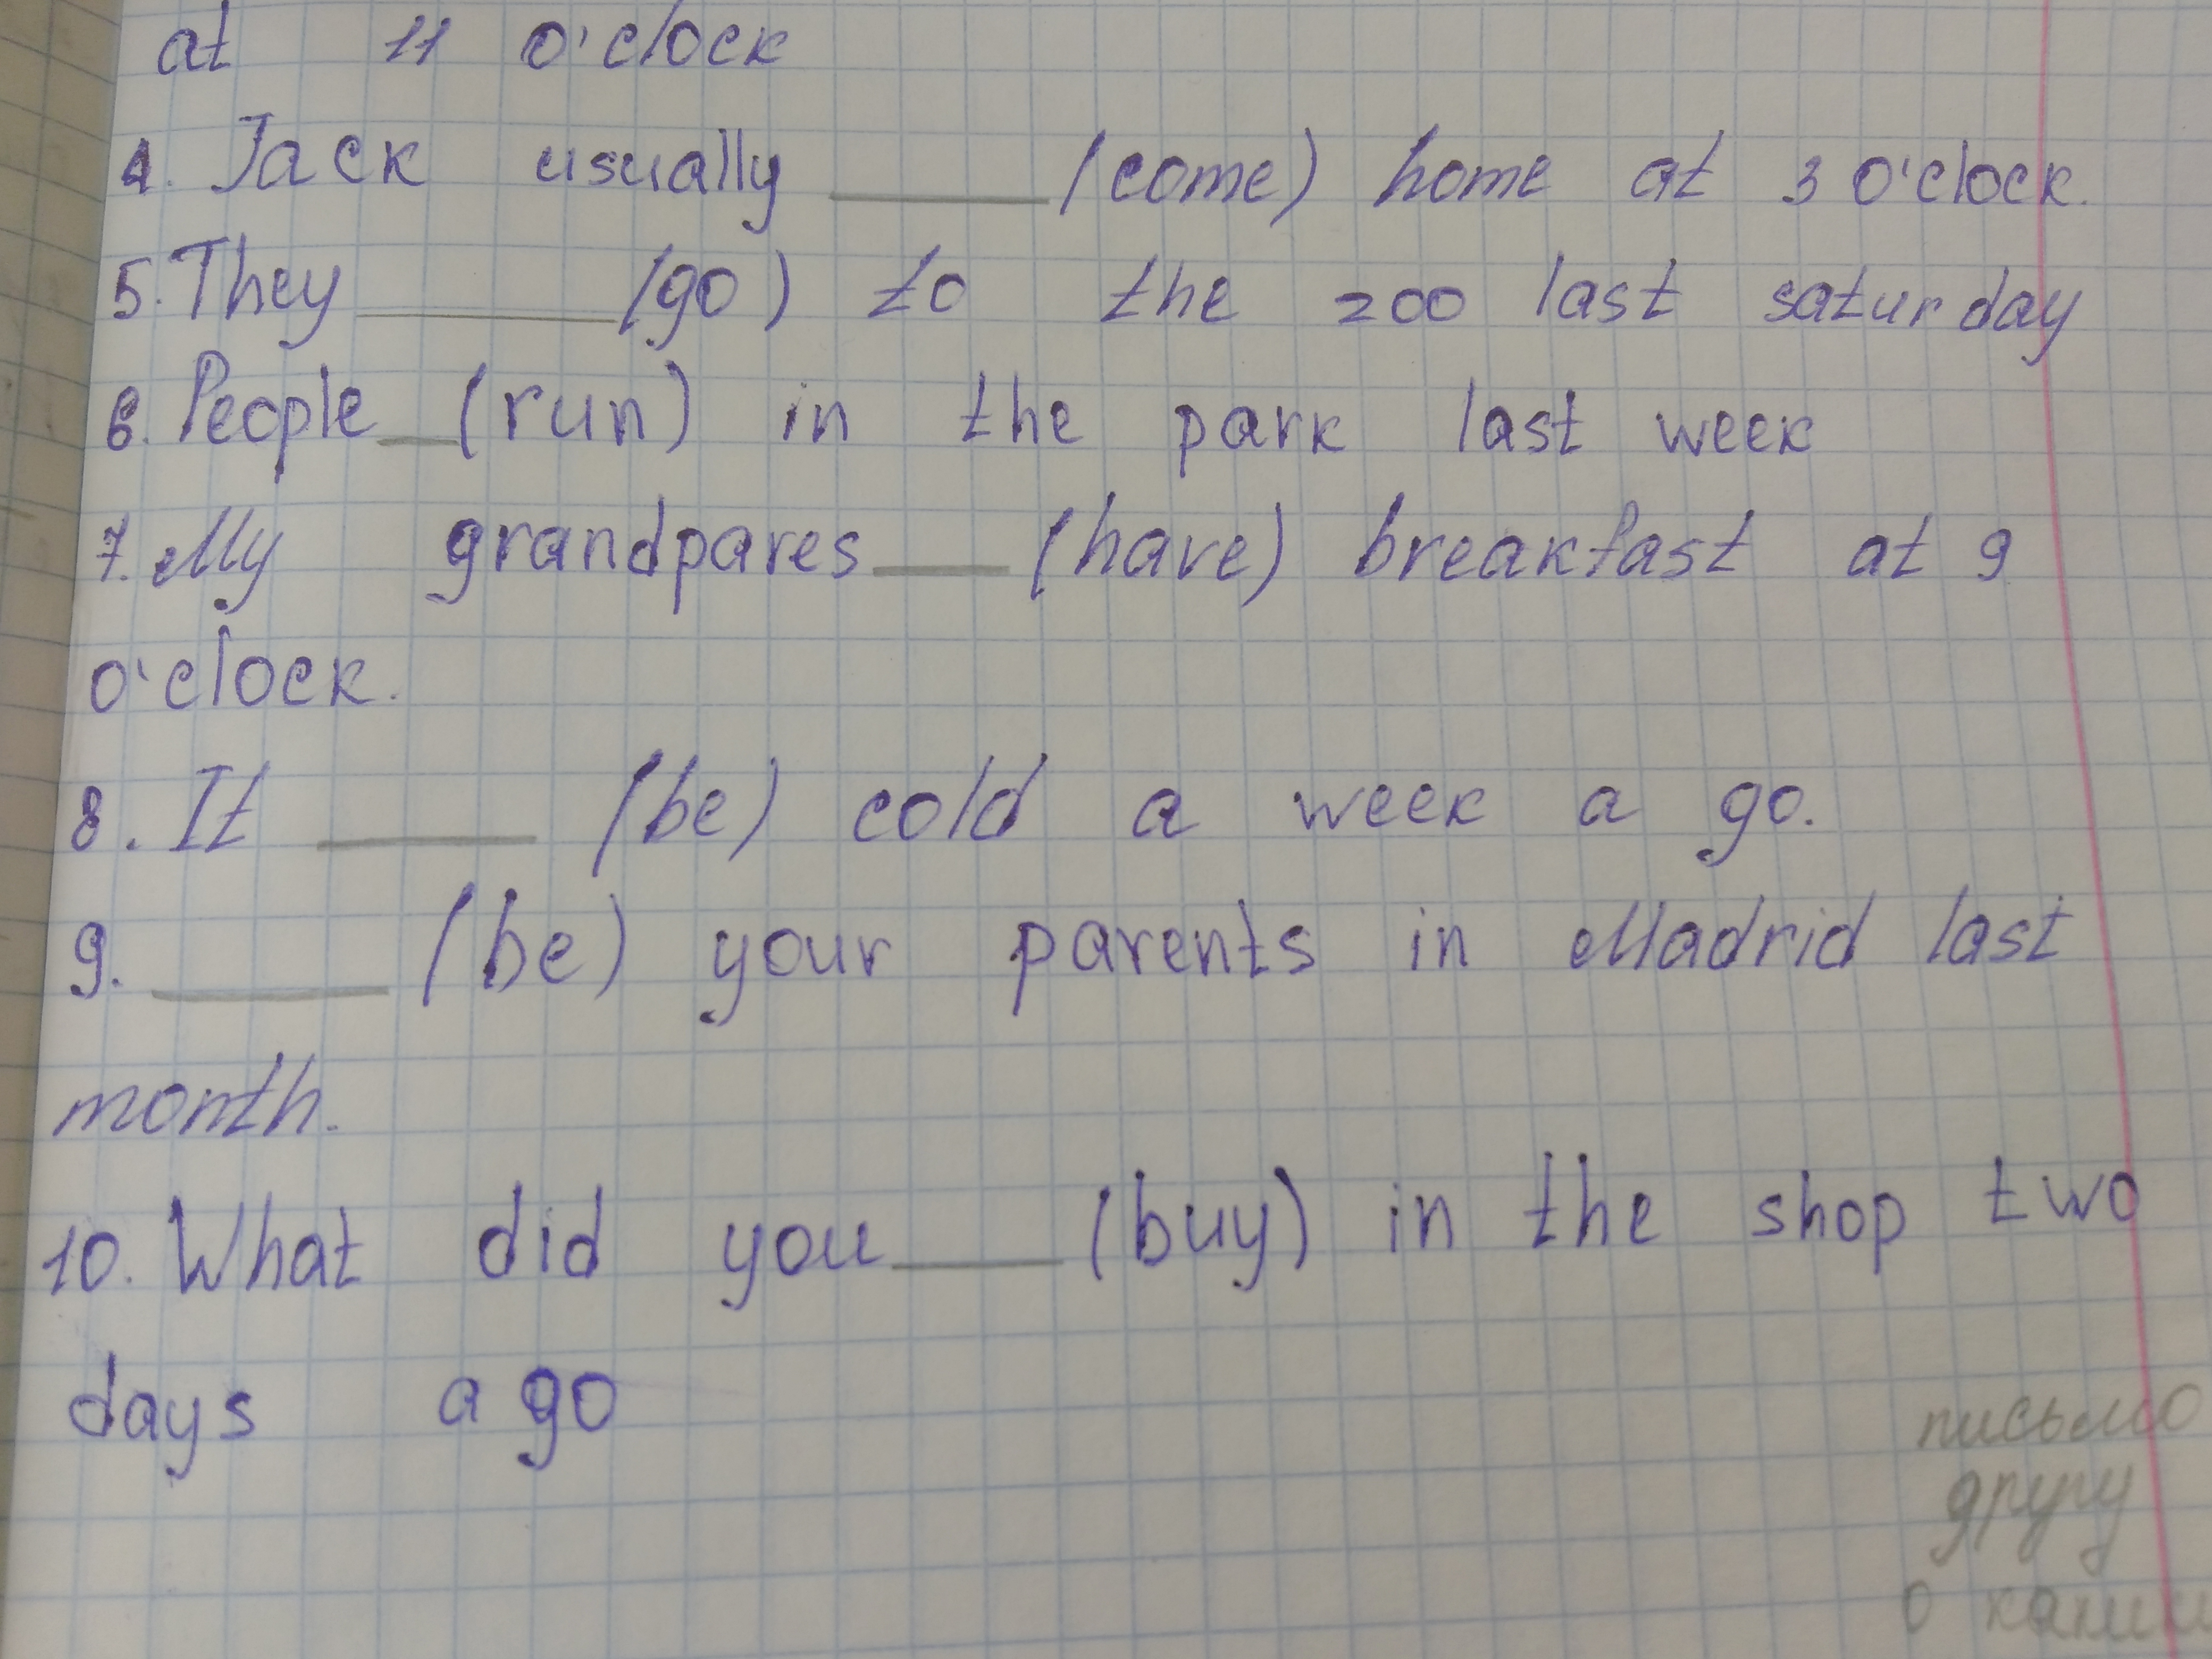 at 11 o'clock
4. Jack usually ____ (come) home at 3 o'clock.
5. They ____ (go) to the zoo last saturday
6. People __ (run) in the park last week
7. My grandpares ___ (have) breakfast at 9
o'clock.
8. It ____ (be) cold a week a go.
9. ____ (be) your parents in Madrid last
month.
10. What did you ___ (buy) in the shop two
days a go
письмо
другу
о